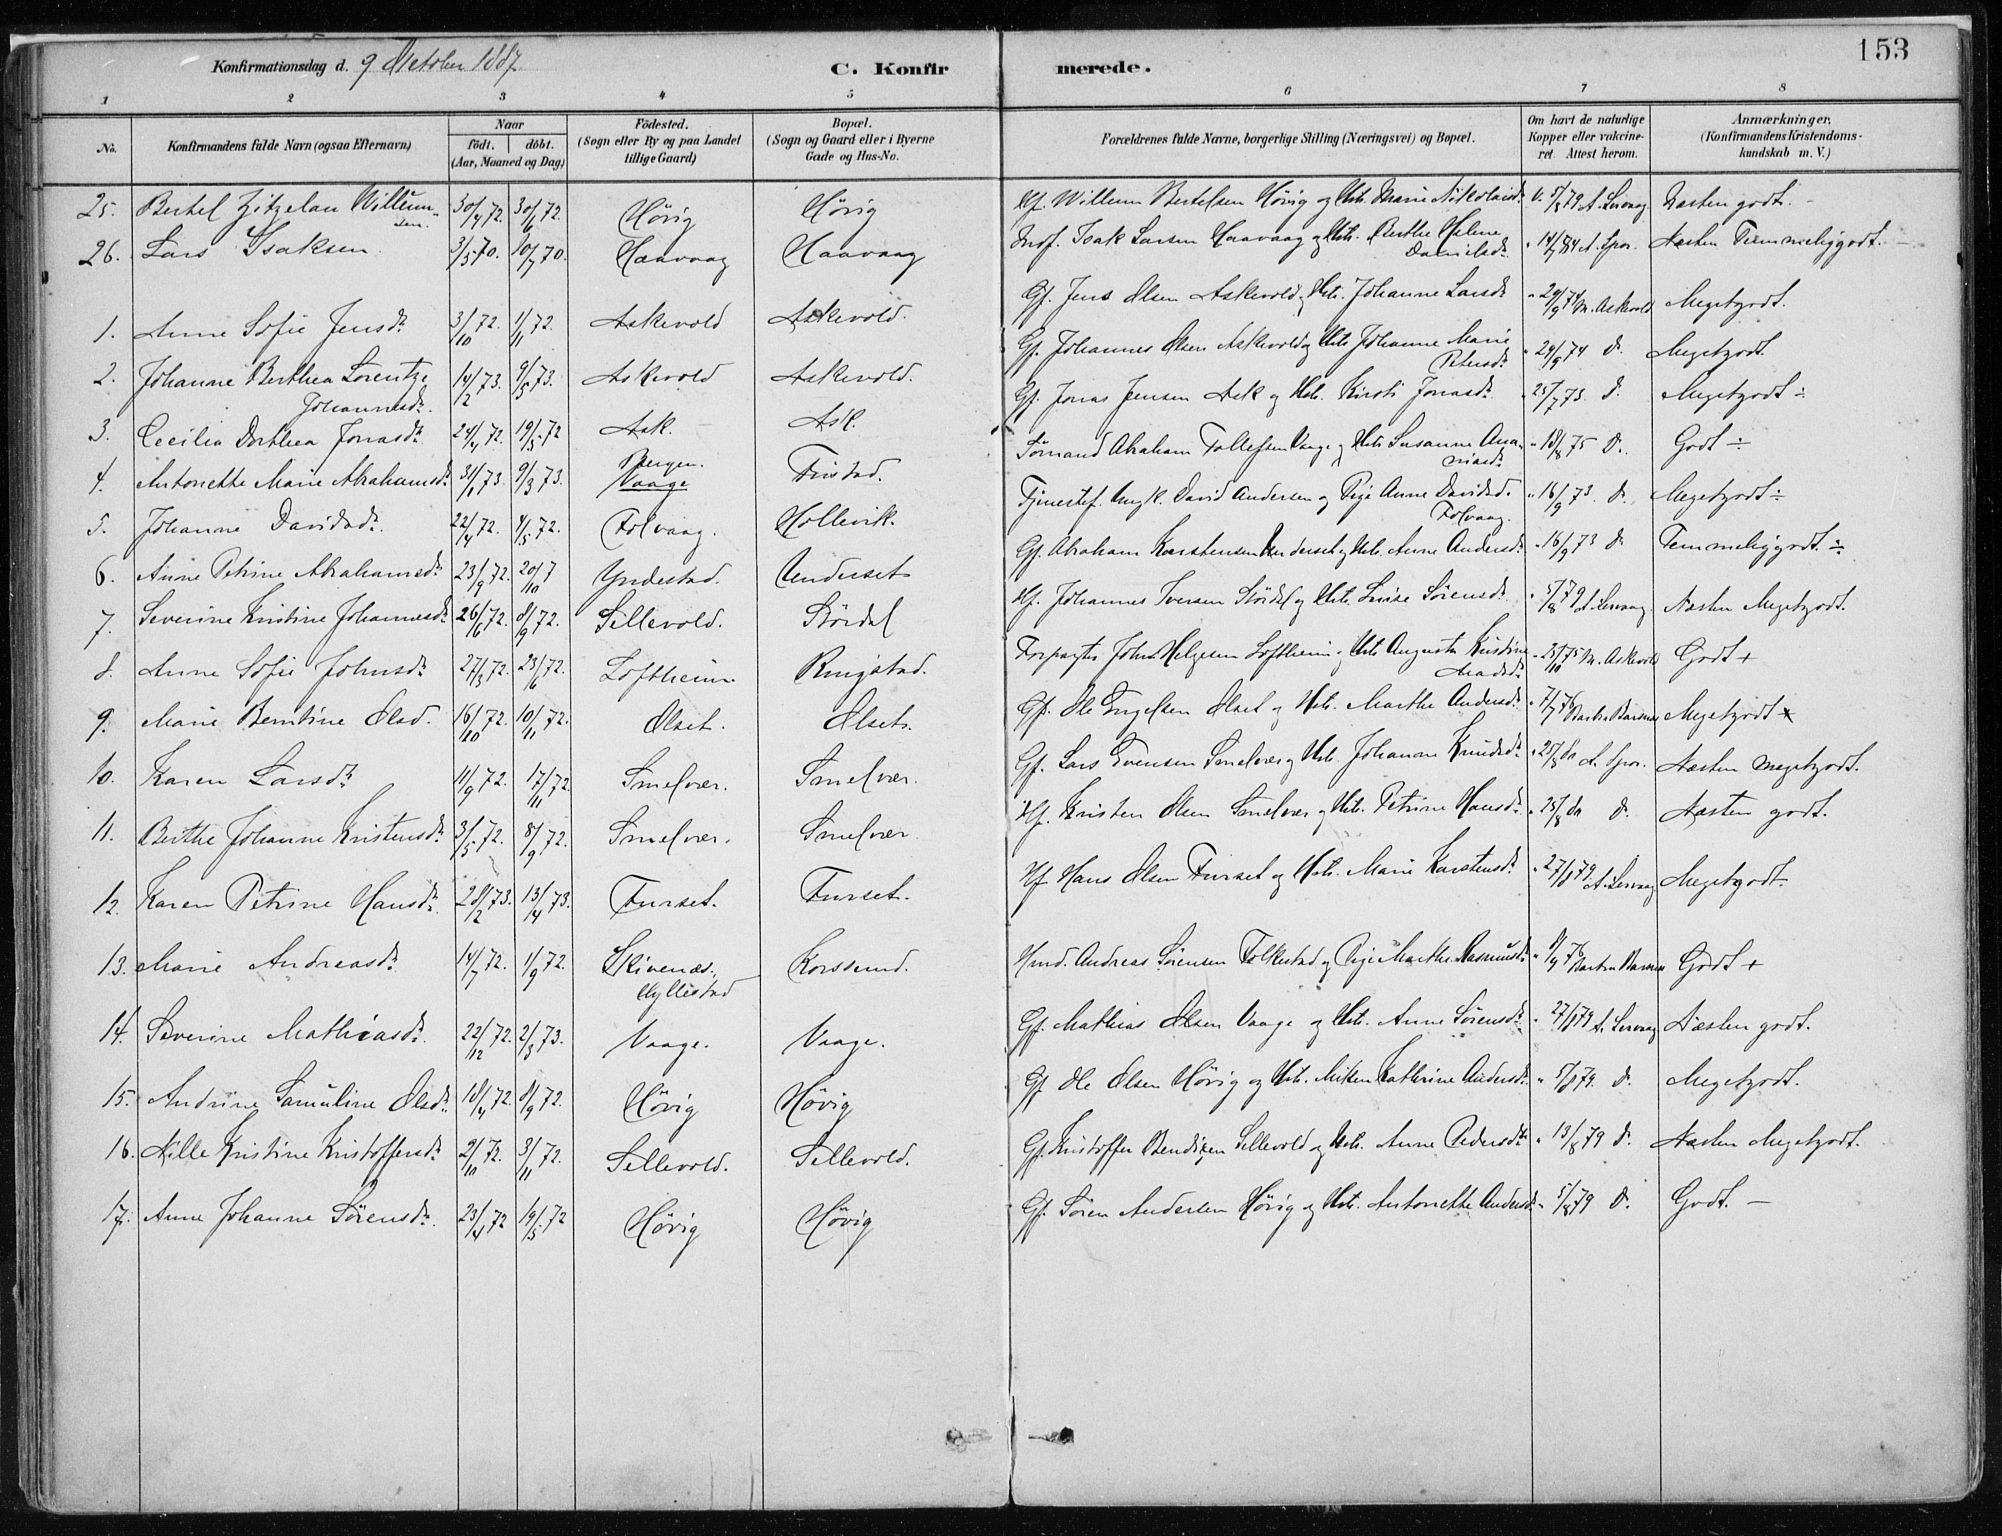 153
Konfirmationsdag d. 9 October 1887. C. Konfirmerede.
1 2 3 4 5 6 7 8
No. Konfirmandens fulde Navn (ogsaa Efternavn) Naar födt. döbt. (Aar, Maaned og Dag) Födested. (Sogn eller By og paa Landet tillige Gaard) Bopæl. (Sogn og Gaard eller i Byerne Gade og Hus-No. Forældrenes fulde Navne, borgerlige Stilling (Næringsvei) og Bopæl. Om havt de naturlige Kopper eller vakcineret. Attest herom. Anmærkninger. (Konfirmandens Kristendomskundskab m. V.)
25. Bertel Zitzelan Willumsen. 30/4 72. 30/6 72. Hövig Hövig Hf. Willum Bertelsen Hövig og Hst. Marie Nikolaisd. V. 5/8 79 A. Servag Næsten godt. -
26. Lars Isaksen 3/5 70. 10/7 70. Haavaag Haavaag Isak Larsen Haavaag og Hst. Berthe Helene Danielsd. " 14/7 84 A. Spor. Næsten Temmeliggodt. -
1. Anne Sofie Jensdr. 3/10 72. 1/11 72. Askevold Askevold. Gf. Jens Olsen Askevold og Hst. Johanne Larsdr. " 24/9 74 M. Askevold Megetgodt.
2. Johanne Berthea Lorentze Johannesdr. 14/2 73. 9/5 73. Askevold Askevold. Gf. Johannes Olsen Askevold og Hst. Johanne Marie Petersdr. " 24/9 74 Do. Megetgodt.
3. Cecilia Dorthea Jonasdr. 24/4 72. 19/5 72 Ask. Ask. Gf. Jonas Jensen Ask og Hst. Kirsti Jonasdr. " 25/7 73. Do. Megetgodt ÷
4. Antonette Marie Abrahamsdr. 31/1 73. 9/3 73. Bergen. Vaage Fristad. Tömand Abraham Tollefsen Vaage og Hst. Susanne Ananiasdr. " 18/8 75 Do. Godt ÷
5. Johanne Davidsdr. 22/4 72. 4/5 72. Folvaag. Hollevik. Tjenestef. Ungk. David Andersen og Pige Anne Davidsd. Folvaag. " 16/9 73. Do. Megetgodt ÷
6. Anne Petrine Abrahamsdr. 23/9 72. 20/10 7 Yndestad. Underset Gf. Abraham Karstensen Underset og Hst. Anne Andersdr. " 16/9 73 Do. Temmeliggodt. ÷
7. Severine Kristine Johannesdr. 26/6 72. 8/9 72. Sellevold. Stördal Hf. Johannes Iversen Stördal og Hst. Lovise Sörensdr. " 5/8 79 A. Servag Næsten Megetgodt.
8. Anne Sofie Johnsdr. 27/3 72. 23/6 72. Loftheim. Ringstad. Forpagter John Helgesen Loftheim og Hst. Augusta Kristine Madsdr. " 23/10 75 M. Askevold Godt +
9. Marie Berntine Olsd. 16/10 72. 10/11 72. Olset. Olset. Gf. Ole Engelsen Olset og Hst. Marthe Andersdr. " 7/7 76 Megetgodt +
10. Karen Larsdr. 11/9 72. 17/11 72 Smelvær. Smelvær. Gf. Lars Svensen Smelvær og Hst. Johanne Knudsdr. " A. Spor. Næsten megetgodt.
11. Berthe Johanne Kristensdr. 3/5 72. 8/9 72. Smelvær. Smelvær. Hf. Kristen Olsen Smelvær og Hst. Petrine Hansdr. " Do. Næsten godt.
12. Karen Petrine Hansdr. 28/2 73. 13/4 73. Furset. Furset. Hf. Hans Olsen Furset og Hst. Marie Karstensdr. " 27/8 79. A. Servag Megetgodt.
13. Marie Andreasdr. 14/7 72. 1/9 72. Skivenæs. Hyllestad Korssund. Andreas Sörensen Folkestad og Pige Marthe Rasmusdr. Godt +
14. Severine Mathiasdr. 22/12 72. 2/3 73. Vaage. Vaage. Gf. Mathias Olsen Vaage og Hst. Anne Sörensdr. " 27/8 79 A. Servag Næsten godt.
15. Andrine Samuline Olsdr. 18/4 72. 8/9 72. Hövig Hövig Gf. Ole Olsen Hövig og Hst. Kathrine Andersdr. " 5/8 79. Do. Megetgodt.
16. Nille Kristine Kristoffersdr. 2/10 72. 3/11 72. Sellevold. Sellevold. Gf. Kristoffer Bendixen Sellevold og Hst. Anne Pedersdr. " 13/8 79 Do. Næsten Megetgodt.
17. Anne Johanne Sörensdr. 23/4 72 19/5 72 Hövig Hövig Gf. Sören Andersen Hövig og Hst. Antonette Andersd. " 5/8 79 Do. Godt. -